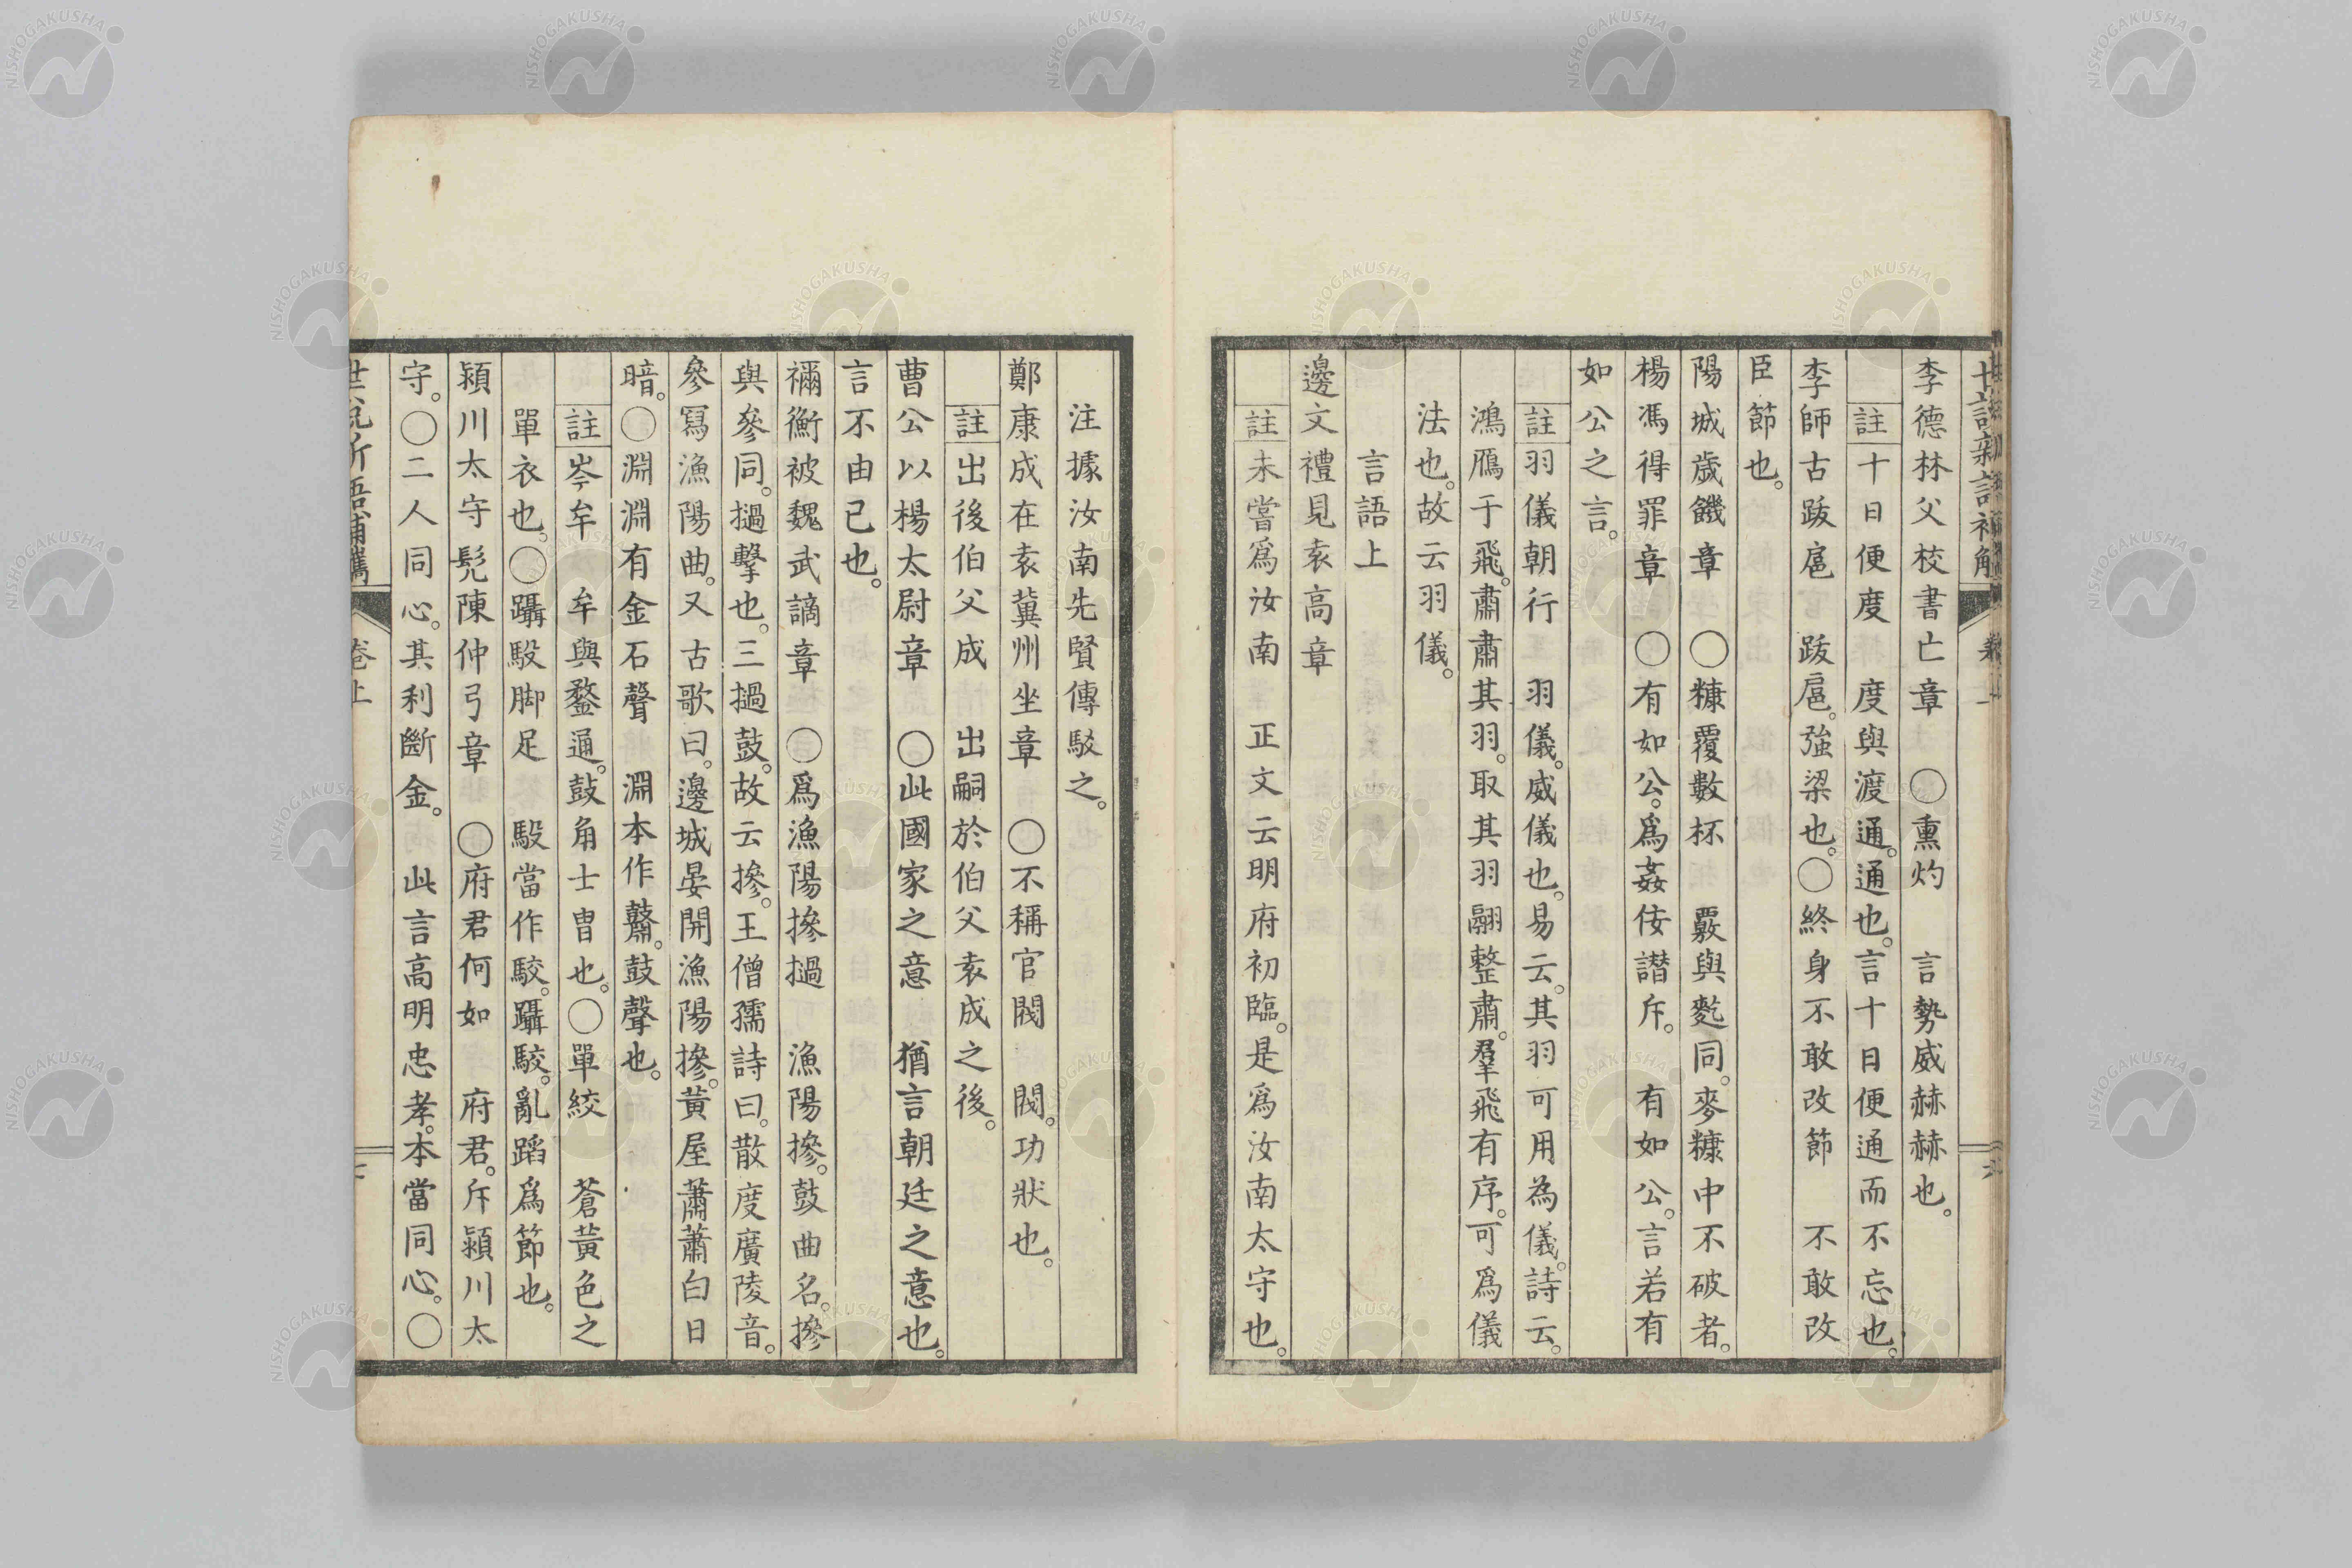 李德林父校書亡章　○熏灼　言勢威赫赫也。
註十日便度　度與渡通。通也。言十日便通而不忘也。
李師古跋扈　跋扈。強梁也。○終身不敢改節　不敢改
臣節也。
陽城歲饑章　○糠覈數杯　覈與麧同。麥糠中不破者。
楊馮得罪章　○有如公。爲姦侫譖斥。　有如公。言若有
如公之言。
註羽儀朝行　羽儀。威儀也。易云。其羽可用為儀。詩云。
鴻鴈于飛。肅肅其羽。取其羽翮整肅。羣飛有序。可爲儀
法也。故云羽儀。
言語上
邊文禮見袁高章
註未嘗爲汝南　正文云明府初臨。是爲汝南太守也。
注據汝南先賢傳駁之。
鄭康成在袁冀州坐章　○不稱官閥　閥。功狀也。
註出後伯父成　出嗣於伯父袁成之後。
曹公以楊太尉章　○此國家之意　猶言朝廷之意也。
言不由已也。
禰衡被魏武謫章　○爲漁陽摻撾　漁陽摻。鼓曲名。摻
與參同。撾擊也。三撾鼓。故云摻。王僧孺詩曰。散度廣陵音。
參寫漁陽曲。又古歌曰。邊城晏開漁陽摻。黃屋蕭蕭白日
暗。○淵淵有金石聲　淵本作鼘。鼓聲也。
註岑牟　牟與鍪通。鼓角士胄也。○單絞　蒼黃色之
單衣也。○躡馺脚足　馺當作駮。躡駮。亂蹈爲節也。
潁川太守髡陳仲弓章　○府君何如　府君。斥潁川太
守。○二人同心。其利斷金。　此言高明忠孝。本當同心。○
卷上